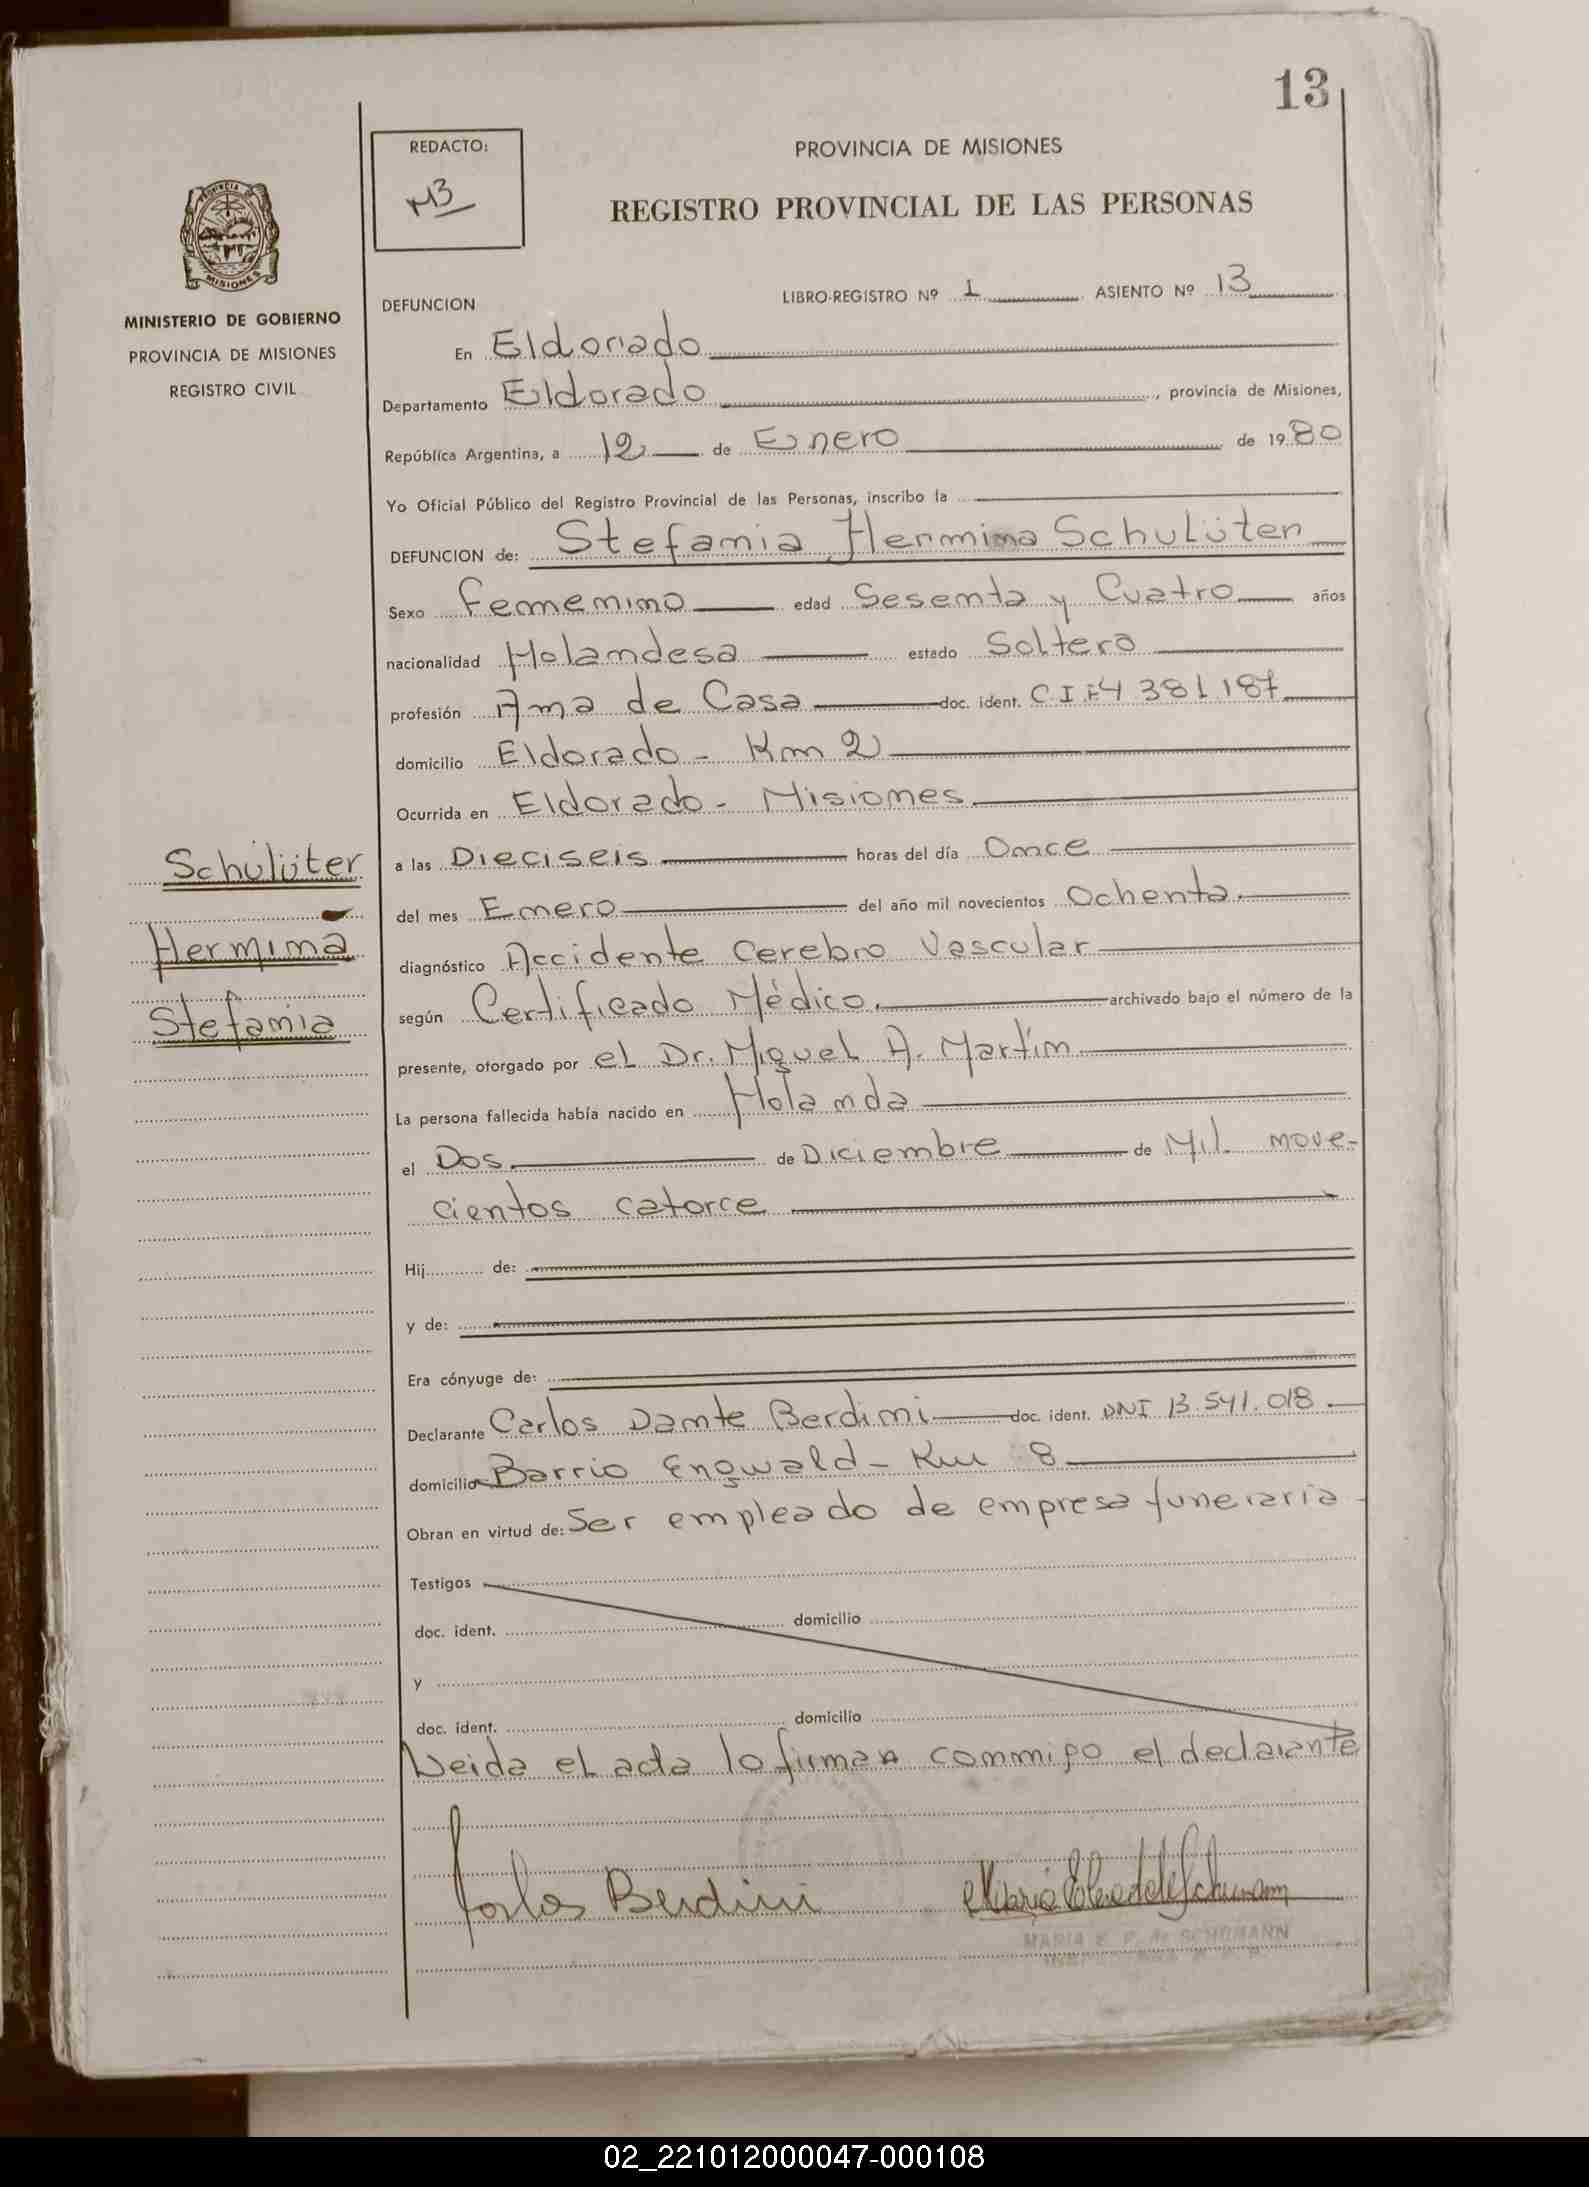 13
REDACTO:
M3
PROVINCIA DE MISIONES
REGISTRO PROVINCIAL DE LAS PERSONAS
PROVINCIA DE
MISIONES
MINISTERIO DE GOBIERNO
PROVINCIA DE MISIONES
REGISTRO CIVIL
DEFUNCION
LIBRO-REGISTRO Nº 1 ASIENTO Nº 13
En Eldorado
Departamento Eldorado, provincia de Misiones,
República Argentina, a 12 de Enero de 1980
Yo Oficial Público del Registro Provincial de las Personas, inscribo la
DEFUNCION de: Stefania Hermina Schulüter
Sexo Femenino edad Sesenta y Cuatro años
nacionalidad Holandesa estado Soltera
profesión Ama de Casa doc. ident. C.I.F4 381 187
domicilio Eldorado - Km 2
Ocurrida en Eldorado - Misiones
a las Dieciseis horas del día Once
del mes Enero del año mil novecientos Ochenta.
diagnóstico Accidente Cerebro Vascular
según Certificado Médico. archivado bajo el número de la
presente, otorgado por el Dr. Miguel A. Martín
La persona fallecida había nacido en Holanda
el Dos de Diciembre de Mil nove-
cientos catorce
Hij de:
y de:
Era cónyuge de:
Declarante Carlos Dante Berdini doc. ident. DNI 13.541.018.
domicilio Barrio Engwald - Km 8
Obran en virtud de: Ser empleado de empresa funeraria.
Testigos
doc. ident. domicilio
y
doc. ident. domicilio
Leida el acta lo firman conmigo el declarante
Carlos Berdini
MARIA E. P. de SCHUMANN
Schulüter
Hermina
Stefania
02_221012000047-000108